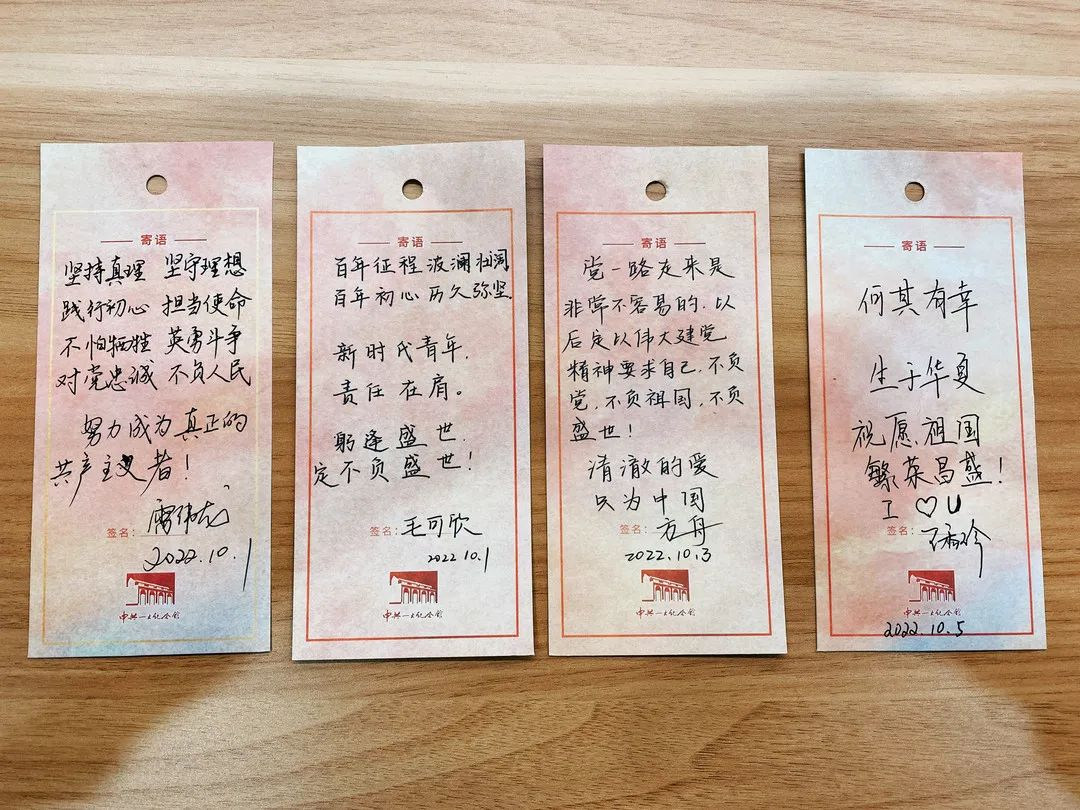 寄语
坚持真理 坚守理想
践行初心 担当使命
不怕牺牲 英勇斗争
对党忠诚 不负人民
努力成为真正的
共产主义者！
签名：
2022.10.1
中共一大纪念馆
寄语
百年征程波澜壮阔
百年初心历久弥坚
新时代青年，
责任在肩。
躬逢盛世.
定不负盛世！
签名：毛可欣
2022 10.1
中共一大纪念馆
寄语
党一路走来是
非常不容易的.以
后定以伟大建党
精神要求自己.不负
党.不负祖国.不负
盛世！
清澈的爱
只为中国
签名：方舟
2022.10.3
中共一大纪念馆
寄语
何其有幸
生于华夏
祝愿祖国
繁荣昌盛！
I ♡ U
签名：
中共一大纪念馆
2022.10.5